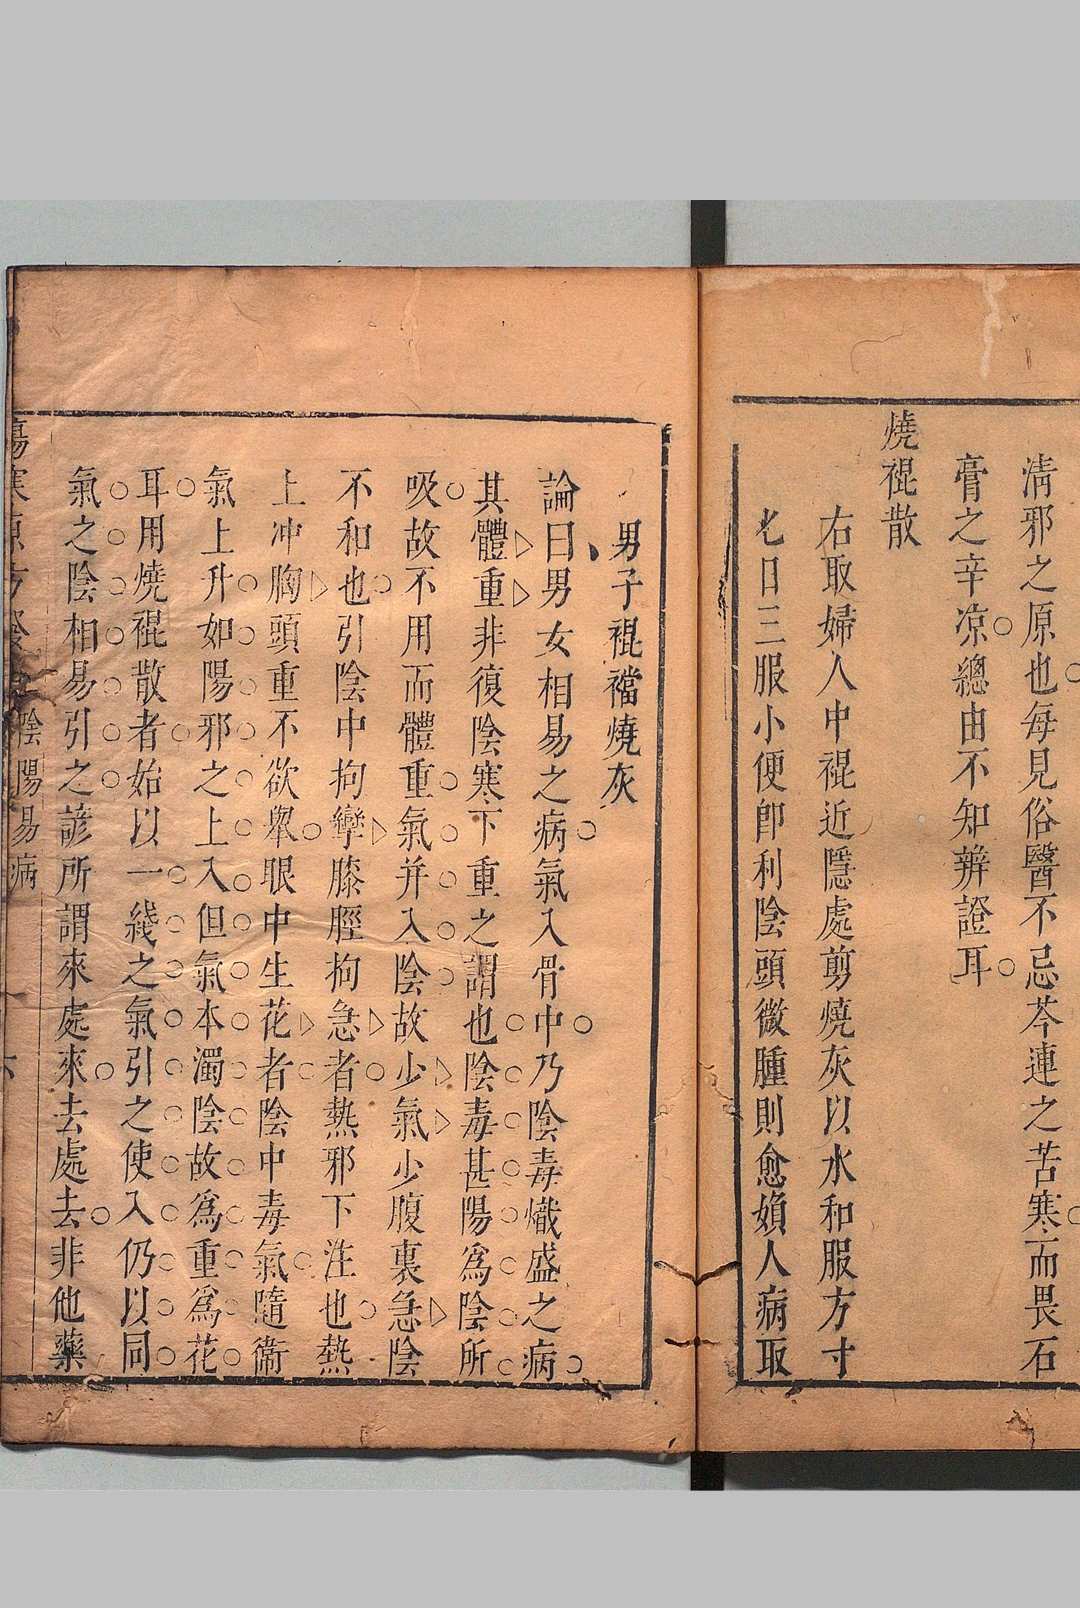 淸邪之原也每見俗醫不忌芩連之苦寒而畏石
膏之辛凉總由不知辨證耳
燒裩散
右取婦人中裩近隱處剪燒灰以水和服方寸
匕日三服小便卽利陰頭微腫則愈婦人病取
男子裩襠燒灰
論曰男女相易之病氣入骨中乃陰毒熾盛之病
其體重非復陰寒下重之謂也陰毒甚陽爲陰所
吸故不用而體重氣并入陰故少氣少腹裏急陰
不和也引陰中拘攣膝脛拘急者熱邪下注也熱
上冲胸頭重不欲舉眼中生花者陰中毒氣隨衝
氣上升如陽邪之上入但氣本濁陰故爲重爲花
耳用燒裩散者始以一綫之氣引之使入仍以同
氣之陰相易引之諺所謂來處來去處去非他藥
傷寒 陰陽易病